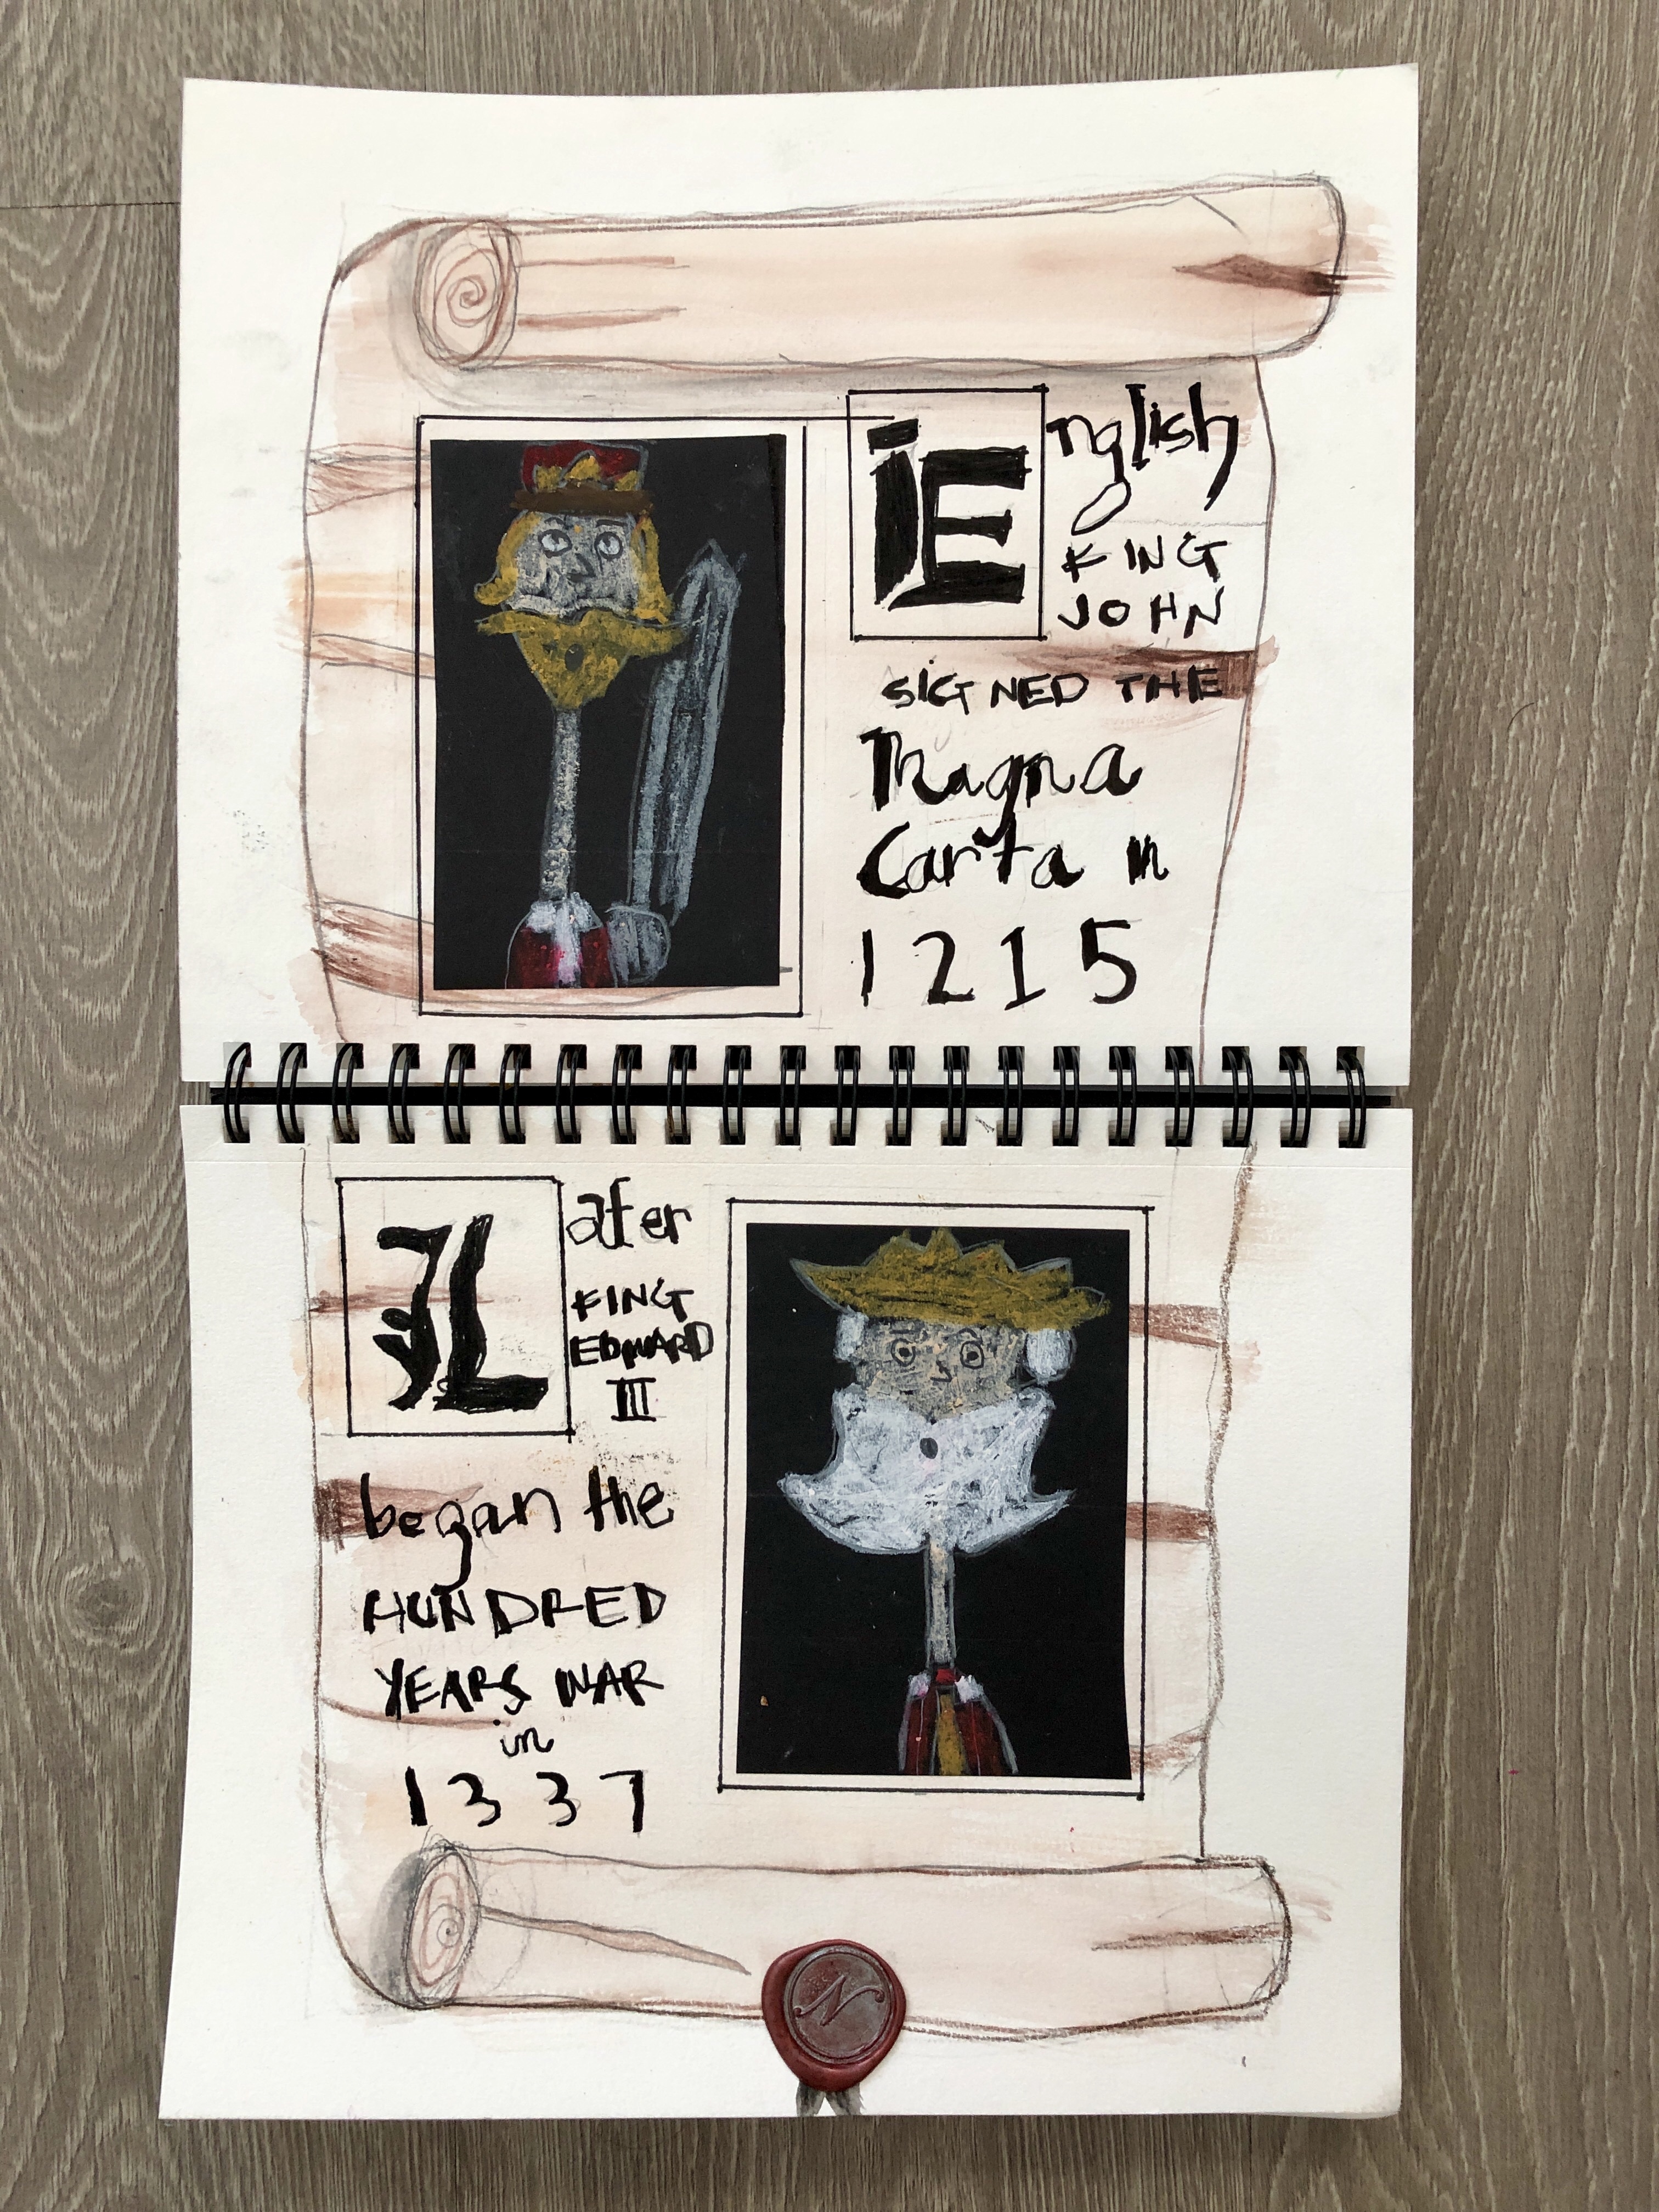 English
KING
JOHN
SIGNED THE
Magna
Carta in
1215
Later
KING
EDWARD
III
began the
HUNDRED
YEARS WAR
in
1337
N